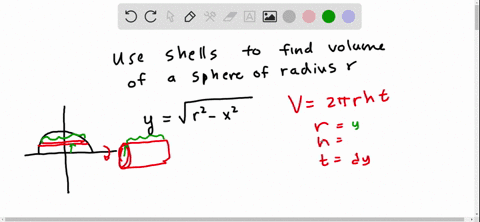 Use shells to find volume
of a sphere of radius r
y = √(r² - x²)
V = 2πrht
r = y
h =
t = dy
r